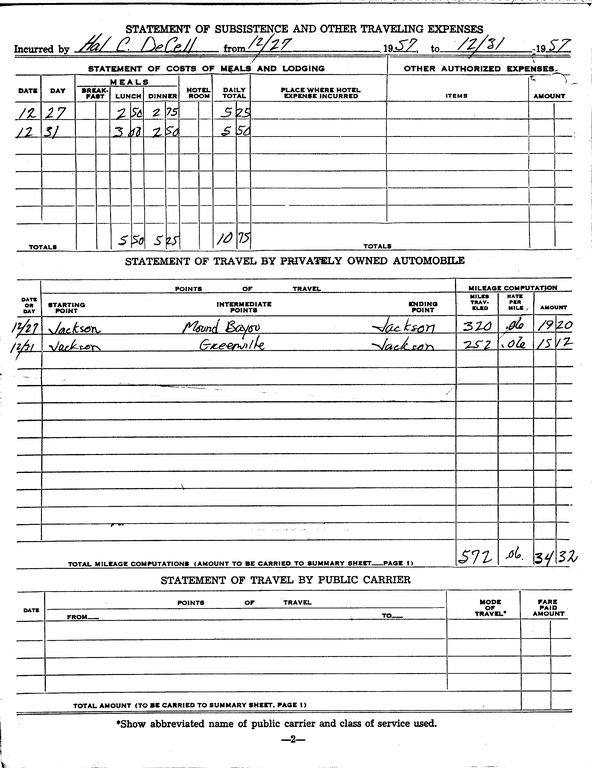 STATEMENT OF SUBSISTENCE AND OTHER TRAVELING EXPENSES
Incurred by Hal C. DeCell from 12/27 1957 to 12/31 1957
STATEMENT OF COSTS OF MEALS AND LODGING OTHER AUTHORIZED EXPENSES.
DATE DAY MEALS BREAKFAST LUNCH DINNER HOTEL ROOM DAILY TOTAL PLACE WHERE HOTEL EXPENSE INCURRED ITEMS AMOUNT
12 27 2 50 2 75 5 25
12 31 3 00 2 50 5 50
TOTALS 5 50 5 25 10 75 TOTALS
STATEMENT OF TRAVEL BY PRIVATELY OWNED AUTOMOBILE
POINTS OF TRAVEL MILEAGE COMPUTATION
DATE OR DAY STARTING POINT INTERMEDIATE POINTS ENDING POINT MILES TRAVELED RATE PER MILE AMOUNT
12/27 Jackson Mound Bayou Jackson 320 .06 19 20
12/31 Jackson Greenville Jackson 252 .06 15 12
TOTAL MILEAGE COMPUTATIONS (AMOUNT TO BE CARRIED TO SUMMARY SHEET__PAGE 1) 572 .06. 34 32
STATEMENT OF TRAVEL BY PUBLIC CARRIER
DATE POINTS OF TRAVEL MODE OF TRAVEL* FARE PAID AMOUNT
FROM__ TO__
TOTAL AMOUNT (TO BE CARRIED TO SUMMARY SHEET, PAGE 1)
*Show abbreviated name of public carrier and class of service used.
—2—